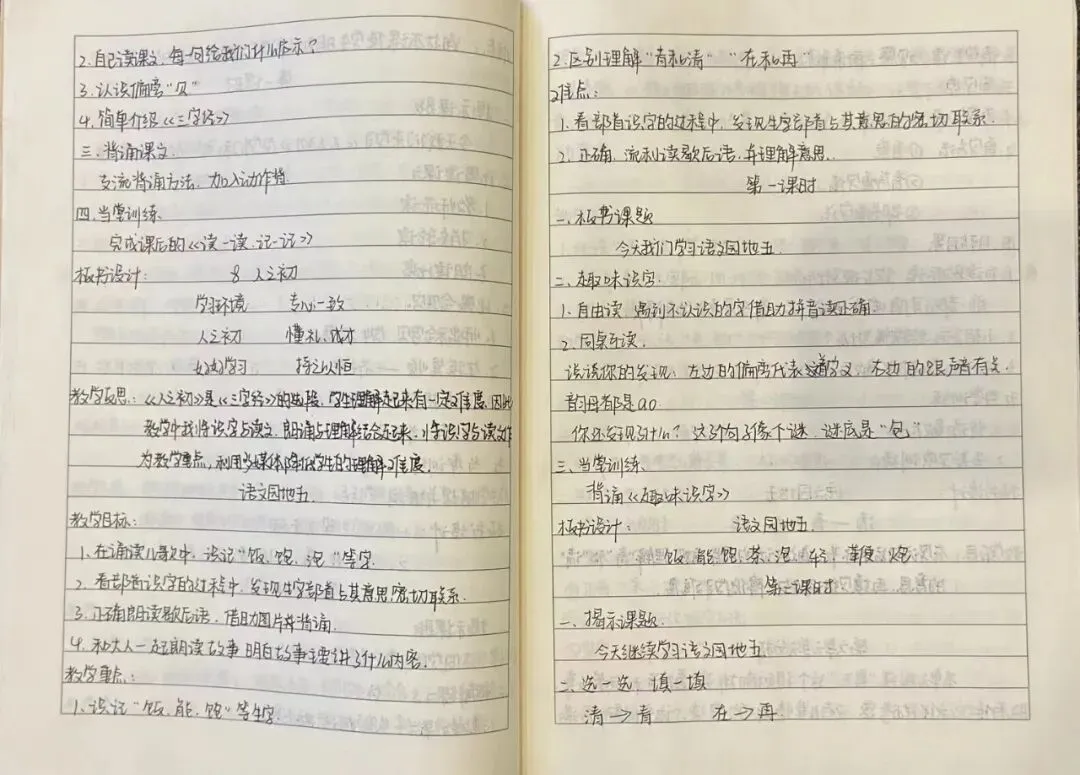 2.自己读课文,每一句给我们什么启示?
3.认识偏旁"贝"
4.简单介绍《三字经》
三.背诵课文.
交流背诵方法,加入动作背.
四.当堂训练.
完成课后的《读一读,记一记》
板书设计: 8 人之初
学习环境 专心一致
人之初 懂礼、成才
好好学习 持之以恒
教学反思:《人之初》是《三字经》的 段,学生理解起来有一定难度,因此
教学中我将识字与读文,朗诵与理解结合起来,将识字与读文作
为教学重点,利用多媒体降低学生的理解难度.
语文园地五.
教学目标:
1.在诵读儿歌中,识记"饭、饱、泡"等字.
2.看部首识字的过程中,发现生字部首与其意思密切联系.
3.正确朗读歇后语,借助图片并背诵.
4.和大人一起朗读故事,明白故事主要讲了什么内容.
教学重点:
1.识记"饭、能、饱"等生字.
2.区别理解"青和清" "在和再"
难点:
1.看部首识字的过程中,发现生字部首与其意思的密切联系.
2.正确、流利读歇后语,并理解意思.
第一课时
一.板书课题
今天我们学习语文园地五.
二.趣味识字.
1.自由读,遇到不认识的字借助拼音读正确
2.同桌互读.
说说你的发现:左边的偏旁代表 字义,右边的跟声音有关
韵母都是ao.
你还发现了什么?这个句子像个谜,谜底是"包".
三.当堂训练.
背诵《趣味识字》
板书设计: 语文园地五
饭、能、饱、茶、泡、轻、鞭、炮
第二课时
一、揭示课题.
今天继续学习语文园地五
二.选一选,填一填
清→青 在→再.